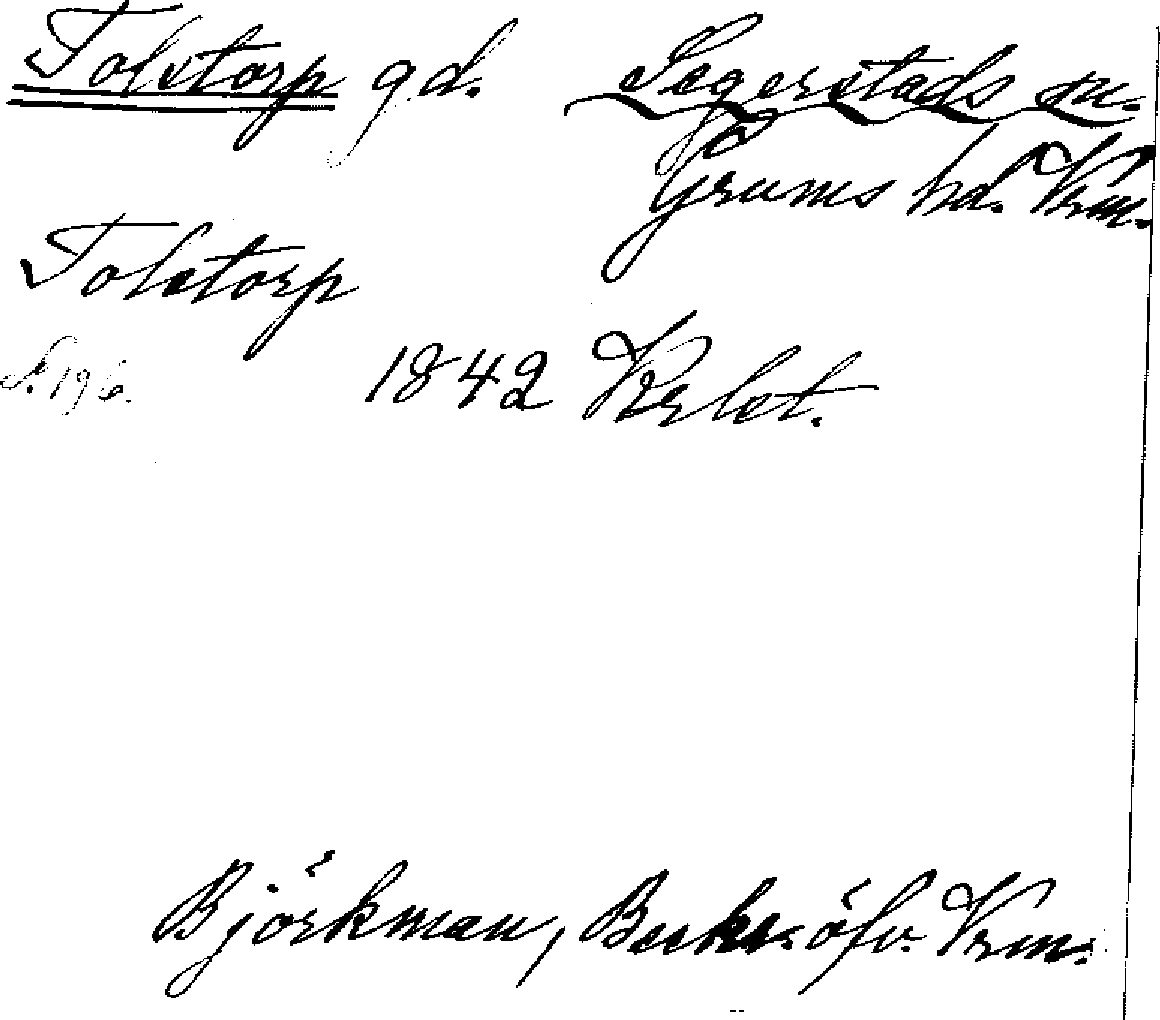 Tolstorp gd. Segerstads sn.
Grums hd. Vrm.
Tolstorp
S. 196. 1842
Björkman, Beskr. öfv. Vrm.